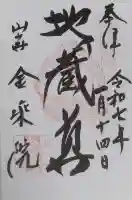 奉拝
令和七年
一月十四日
地蔵尊
金乘院